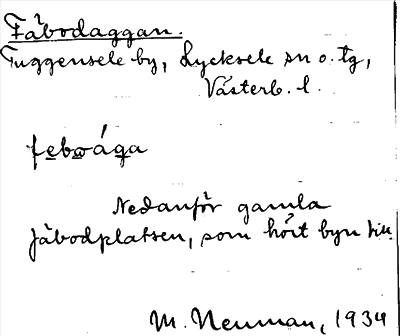 Fäbodaggan.
Tuggensele by, Lycksele sn o. tg,
Västerb. l.
febwága
Nedanför gamla
fäbodplatsen, som hört byn till.
M. Neuman, 1934